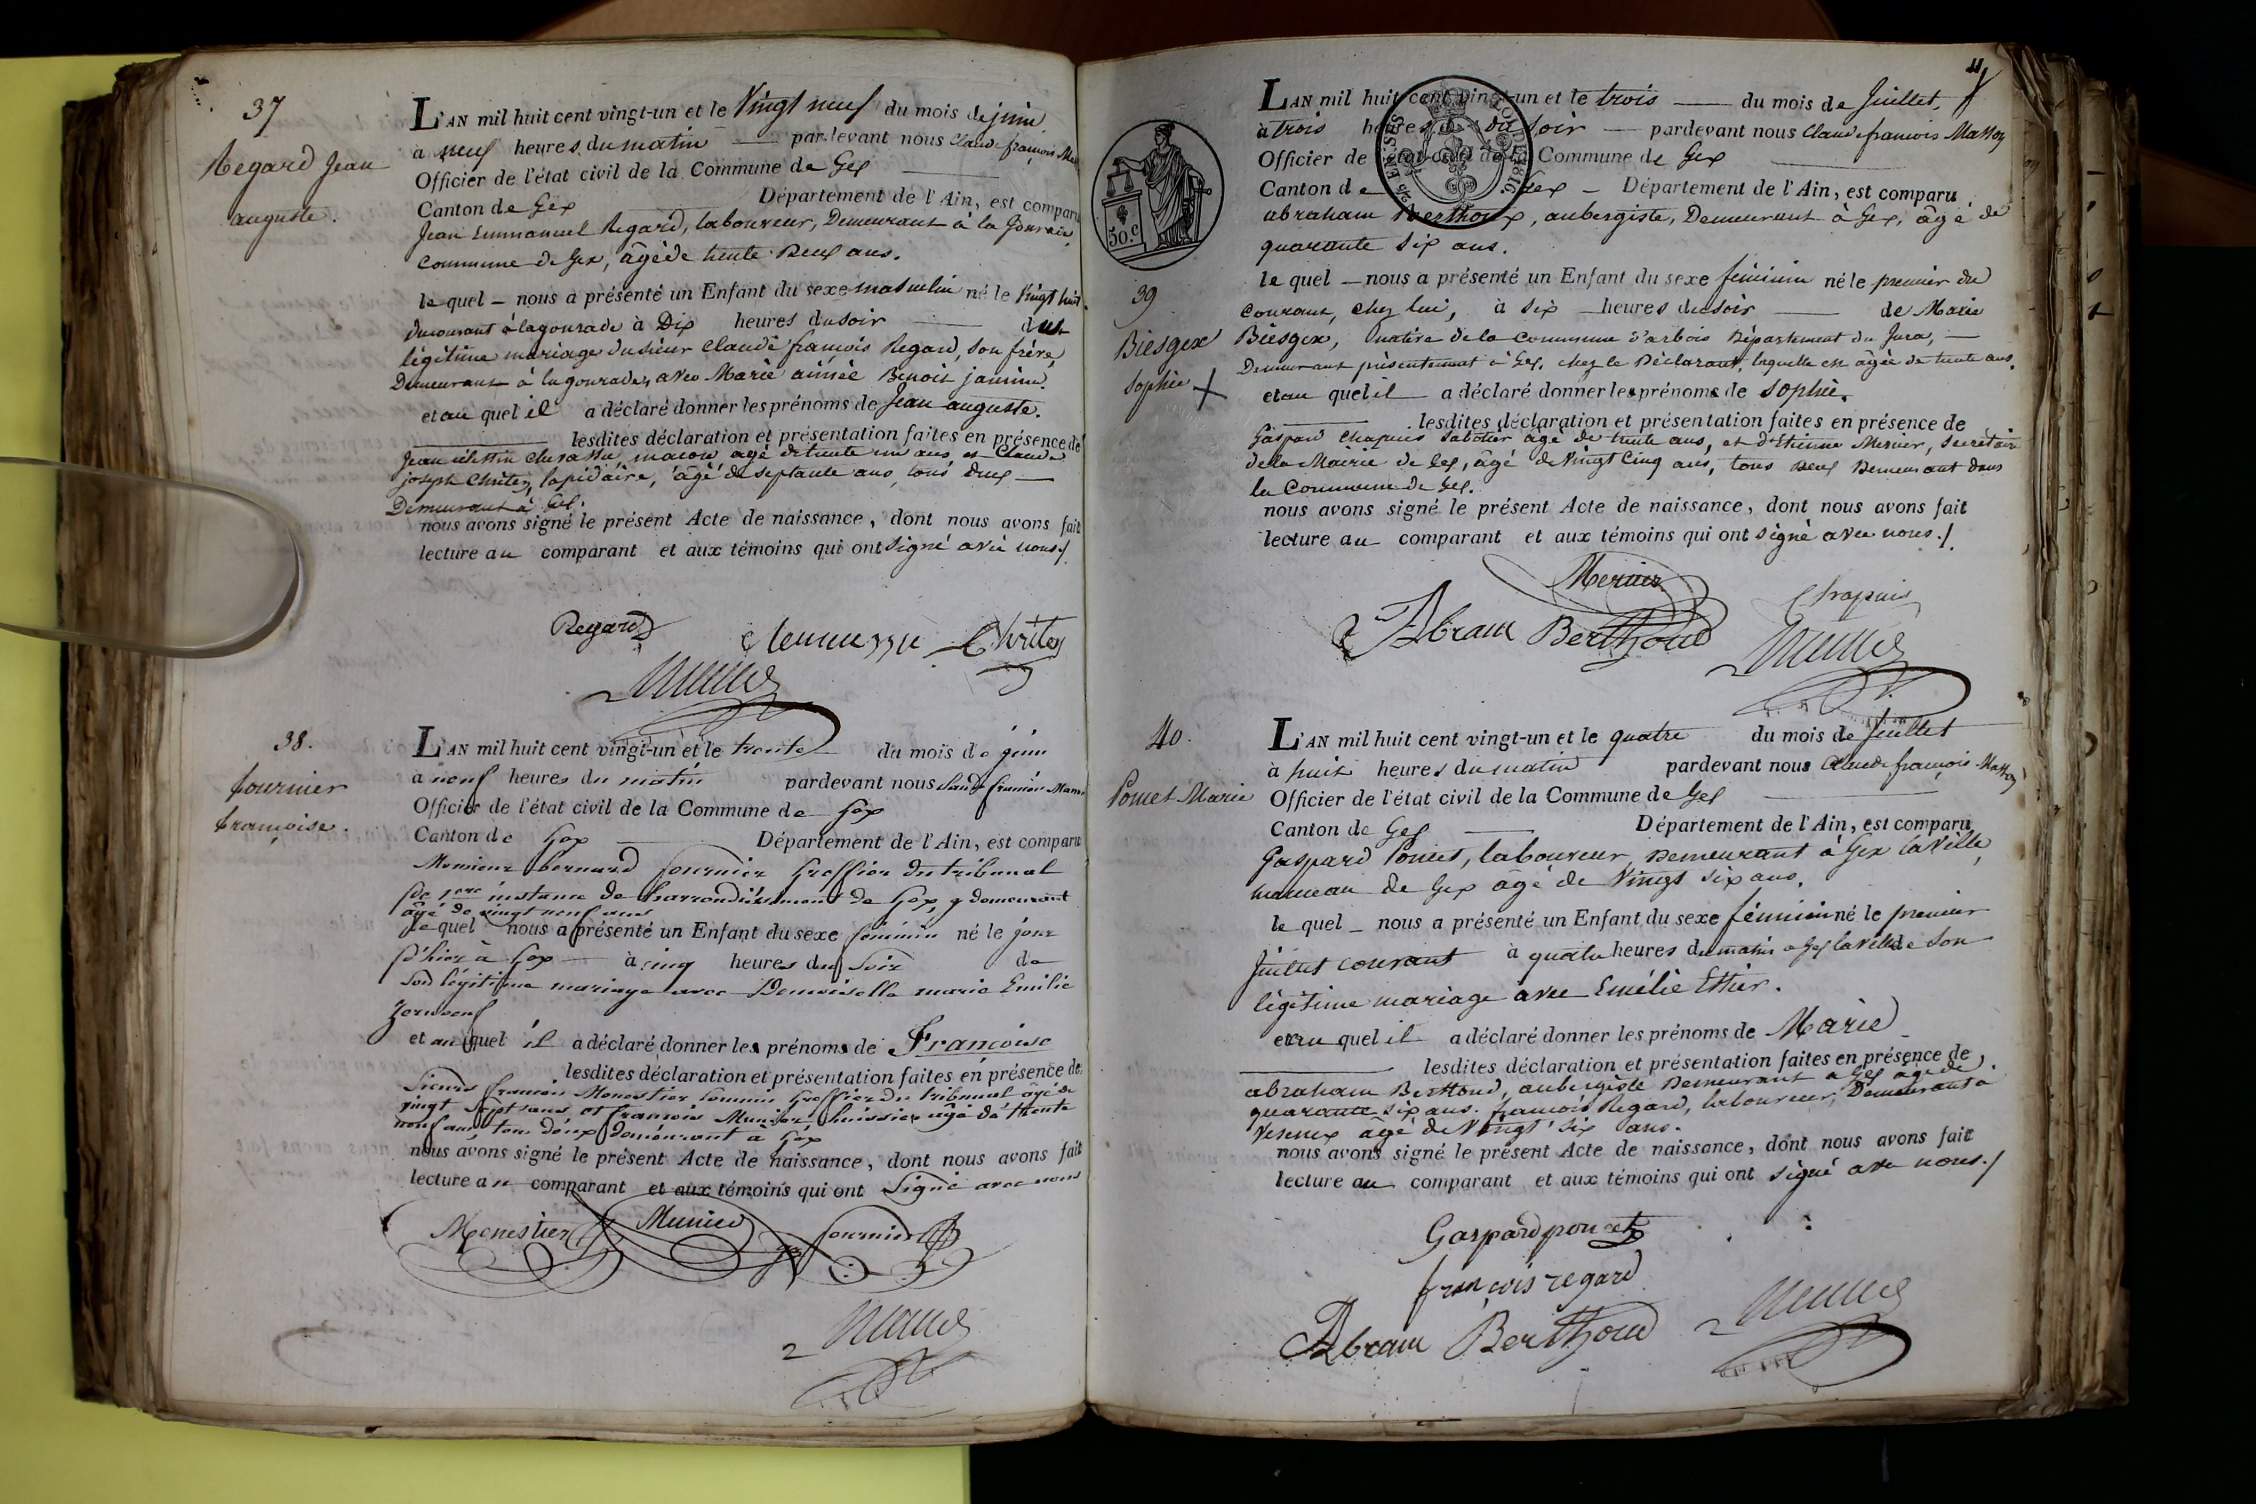 37
Regard Jean
auguste.
L'AN mil huit cent vingt-un et le Vingt neuf du mois de juin
à neuf heures du matin pardevant nous Claude françois
Officier de l'état civil de la Commune de Gex
Canton de Gex Département de l'Ain, est comparu
Jean Emmanuel Regard, laboureur, Demeurant à la
commune de Gex, âgé de trente Deux ans.
le quel nous a présenté un Enfant du sexe masculin né le Vingt huit
Ducourant à lagourade à Dix heures du soir du
légitime mariage du sieur Claude françois Regard, son frère,
Demeurant à la gourade, avec Marie aimée Benoit janime.
et au quel il a déclaré donner les prénoms de Jean auguste.
lesdites déclaration et présentation faites en présence de
Jean maçon agé de trente un ans et Claude
joseph lapidaire, âgé de septante ans, tous deux
Demeurant à Gex.
nous avons signé le présent Acte de naissance, dont nous avons fait
lecture au comparant et aux témoins qui ont signé avec nous./.
Regard
38.
fournier
françoise.
L'AN mil huit cent vingt-un et le trente du mois de juin
à neuf heures du matin pardevant nous Claude françois
Officier de l'état civil de la Commune de Gex
Canton de Gex Département de l'Ain, est comparu
Monsieur bernard fournier Greffier du tribunal
de 1ere instance de l'arrondissement de Gex, y demeurant
âgé de vingt neuf ans
le quel nous a présenté un Enfant du sexe féminin né le jour
d'hier à Gex à cinq heures du soir de
son légitime mariage avec Demoiselle marie Emilie
et au quel il a déclaré donner les prénoms de Françoise
lesdites déclaration et présentation faites en présence de
Sieurs françois Monestier commis Greffier du tribunal âgé de
vingt sept ans, et françois Munier huissier âgé de trente
neuf ans, tous deux demeurant à Gex
nous avons signé le présent Acte de naissance, dont nous avons fait
lecture au comparant et aux témoins qui ont Signé avec nous
Monestier Munier fournier
11
50.c
L'AN mil huit cent vingt-un et le trois du mois de Juillet,
à trois heures du soir pardevant nous Claude françois Masson
Officier de l'état civil de la Commune de Gex
Canton de Gex Département de l'Ain, est comparu
abraham Berthoux, aubergiste, Demeurant à Gex, âgé de
quarante six ans.
39
Biesgex
Sophie X
le quel nous a présenté un Enfant du sexe féminin né le premier du
courant, chez lui, à six heures du soir de Marie
Biesgex, Native de la commune d'arbois Département du Jura,
Demeurant présentement à Gex, chez le Déclarant, laquelle est âgée de trente ans.
et au quel il a déclaré donner les prénoms de Sophie.
lesdites déclaration et présentation faites en présence de
Gaspard Chapuis Sabotier âgé de trente ans, et d'Etienne Mernier, secrétaire
de la Mairie de Gex, âgé de Vingt Cinq ans, tous Deux Demeurant dans
la Commune de Gex.
nous avons signé le présent Acte de naissance, dont nous avons fait
lecture au comparant et aux témoins qui ont signé avec nous./.
Mernier
Chapuis
Abram Berthoud
40.
Poncet Marie
L'AN mil huit cent vingt-un et le quatre du mois de Juillet
à huit heures du matin pardevant nous Claude françois Masson
Officier de l'état civil de la Commune de Gex
Canton de Gex Département de l'Ain, est comparu
Gaspard Poncet, laboureur, Demeurant à Gex la Ville,
hameau de Gex âgé de Vingt six ans.
le quel nous a présenté un Enfant du sexe féminin né le premier
Juillet courant à quatre heures du matin a Gex la ville de Son
légitime mariage avec Emélie Ettier.
et au quel il a déclaré donner les prénoms de Marie
lesdites déclaration et présentation faites en présence de
abraham Berthoud, aubergiste Demeurant à Gex âgé de
quarante six ans. françois Regard, laboureur, Demeurant à
Vesenex âgé de Vingt six ans.
nous avons signé le présent Acte de naissance, dont nous avons fait
lecture au comparant et aux témoins qui ont signé avec nous./
Gaspard poncet
françois regard
Abram Berthoud